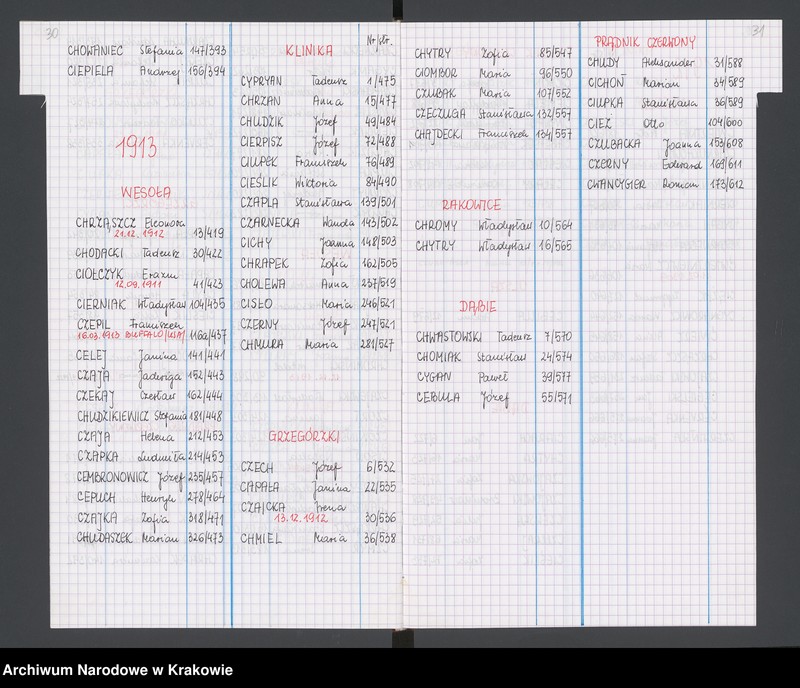 30
CHOWANIEC Stefania 147/393
CIEPIELA Andrzej 156/394
1913
WESOŁA
CHRZĄSZCZ Eleonora
21.12.1912 13/419
CHODACKI Tadeusz 30/422
CIOŁCZYK Erazm
12.09.1911 41/423
CIERNIAK Władysław 104/435
CZEPIL Franciszek
16.03.1913 BUFFALO/USA/ 116a/437
CELEJ Janina 141/441
CZAJA Jadwiga 152/443
CZEKAJ Czesław 162/444
CHUDZIKIEWICZ Stefania 181/448
CZAJA Helena 212/453
CZAPKA Ludmiła 214/453
CEMBRONOWICZ Józef 235/457
CEPUCH Henryk 278/464
CZAJKA Zofia 318/471
CHUDASZEK Marian 326/473
KLINIKA Nr/str.
CYPRYAN Tadeusz 1/475
CHRZAN Anna 15/477
CHUDZIK Józef 49/484
CIERPISZ Józef 72/488
CIUPEK Franciszek 76/489
CIEŚLIK Wiktoria 84/490
CZAPLA Stanisława 139/501
CZARNECKA Wanda 143/502
CICHY Joanna 148/503
CHRAPEK Zofia 162/505
CHOLEWA Anna 237/519
CISŁO Maria 246/521
CZERNY Józef 247/521
CHMURA Maria 281/527
GRZEGÓRZKI
CZECH Józef 6/532
CAPAŁA Janina 22/535
CZAICKA Irena
13.12.1912 30/536
CHMIEL Maria 36/538
CHYTRY Zofia 85/547
CIOMBOR Maria 96/550
CZUBAK Maria 107/552
CZECZUGA Stanisława 132/557
CHAJDECKI Franciszek 134/557
RAKOWICE
CHROMY Władysław 10/564
CHYTRY Władysław 16/565
DĄBIE
CHWASTOWSKI Tadeusz 7/570
CHOMIAK Stanisław 24/574
CYGAN Paweł 39/577
CEBULA Józef 55/571
31
PRĄDNIK CZERWONY
CHUDY Aleksander 31/588
CICHOŃ Marian 34/589
CIUPKA Stanisława 36/589
CIEŻ Otto 104/600
CZUBACKA Joanna 153/608
CZERNY Edward 169/611
CWANCYGIER Roman 173/612
Archiwum Narodowe w Krakowie